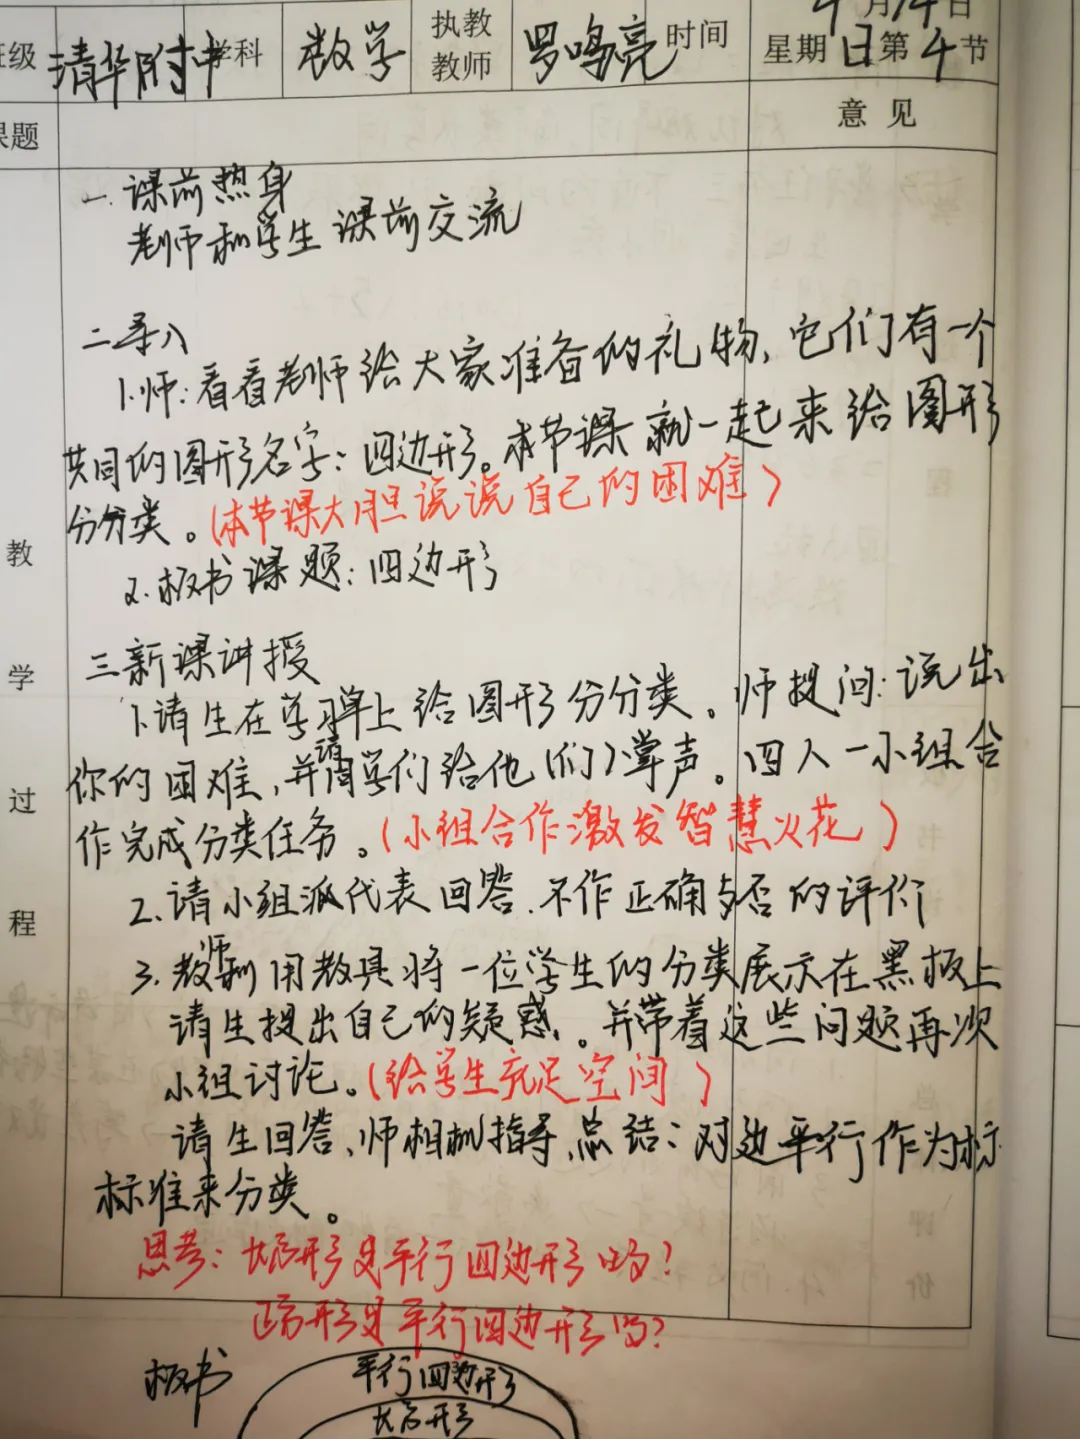 班级 清华附中 学科 数学 执教教师 罗鸣亮 时间 9月14日
星期日第4节
课题 意见
一.课前热身
老师和学生课前交流
二导入
1.师:看看老师给大家准备的礼物,它们有一个
共同的图形名字:四边形。本节课就一起来给图形
分分类。(本节课大胆说说自己的困难)
2.板书课题:四边形
三新课讲授
1.请生在学习单上给图形分分类。师提问:说出
你的困难,并请同学们给他(们)掌声。四人一小组合
作完成分类任务。(小组合作激发智慧火花)
2.请小组派代表回答.不作正确与否的评价
3.教师利用教具将一位学生的分类展示在黑板上
请生提出自己的疑惑.。并带着这些问题再次
小组讨论。(给学生充足空间)
请生回答,师相机指导,总结:对边平行作为标
标准来分类。
思考:长方形是平行四边形吗?
正方形是平行四边形吗?
教学过程
板书
平行四边形
长方形